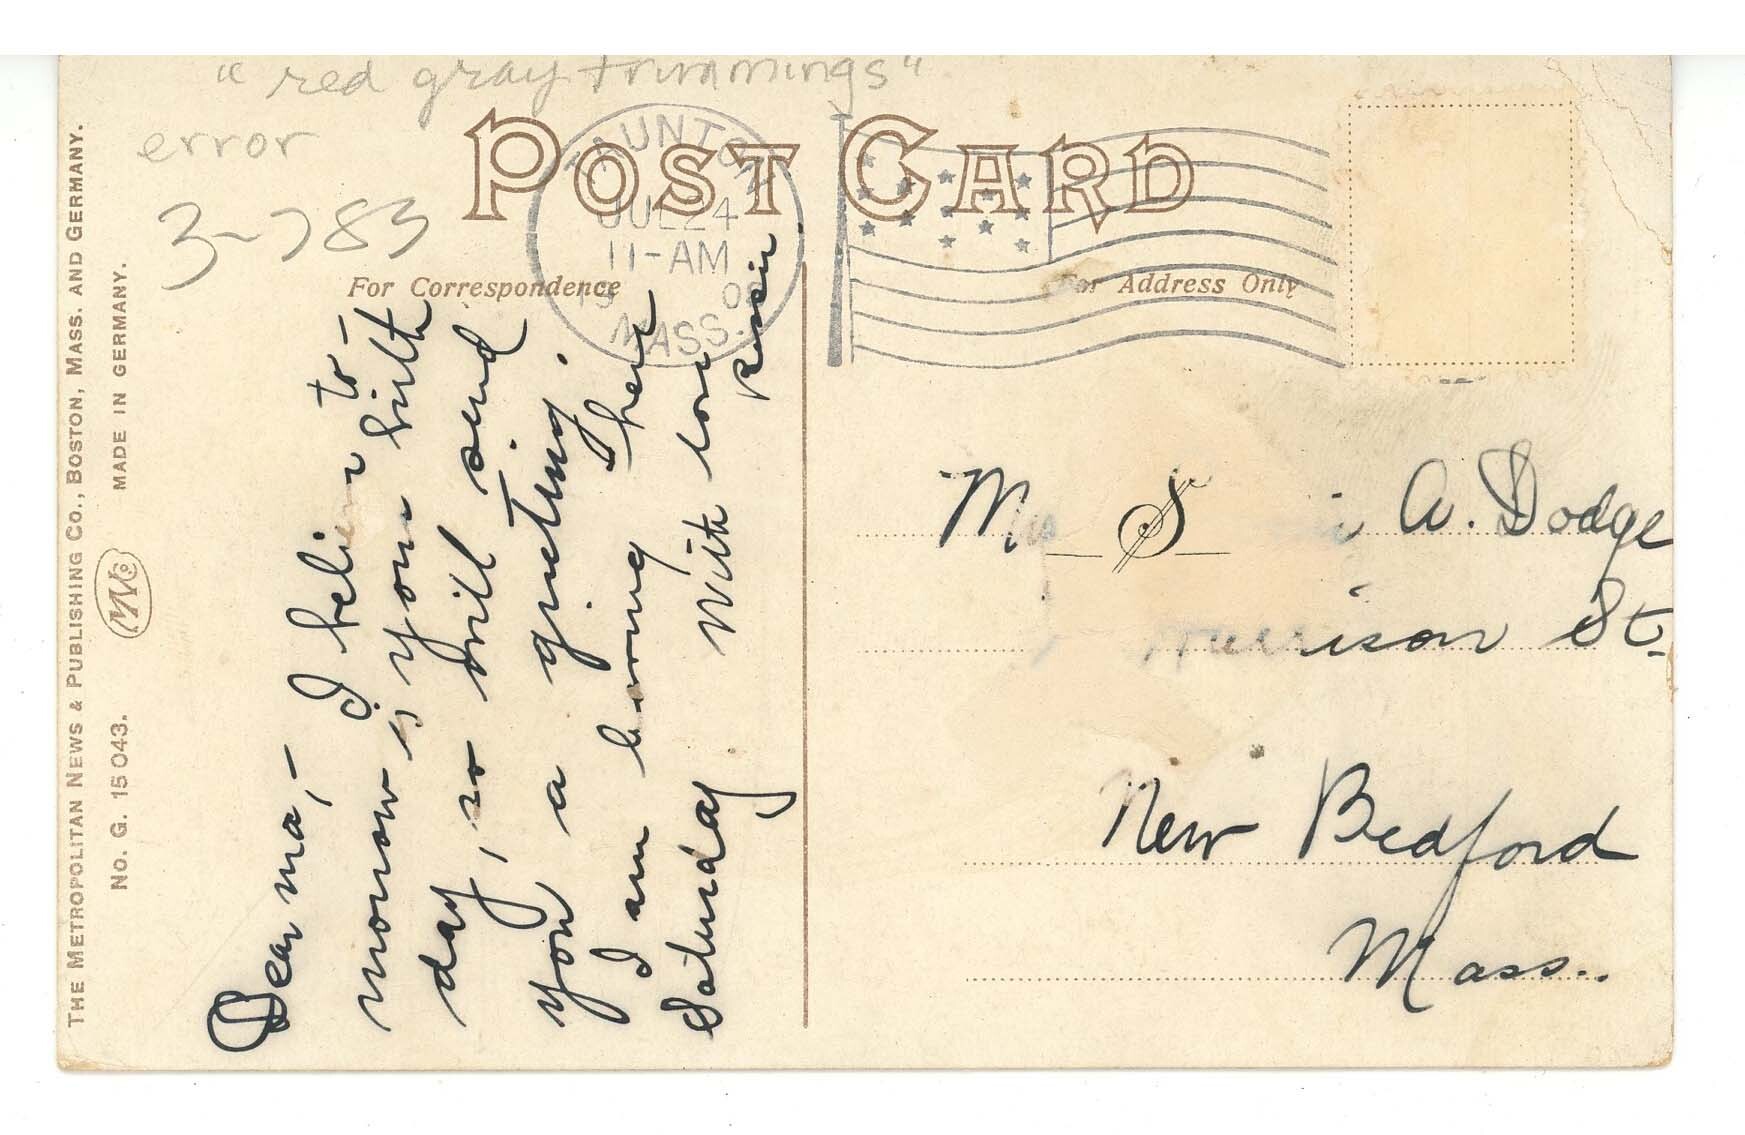 "red gray trimmings"
error
3-783
POST CARD
TAUNTON
JUL 24
11-AM
MASS.
For Correspondence
For Address Only
THE METROPOLITAN NEWS & PUBLISHING CO., BOSTON, MASS. AND GERMANY.
NO. G. 15043.
MADE IN GERMANY.
Dear ma, -
I believe to-
morrow is your birth
day, so will send
you a greeting.
I am having
Saturday. With love
A. Dodge
St.
New Bedford
Mass.